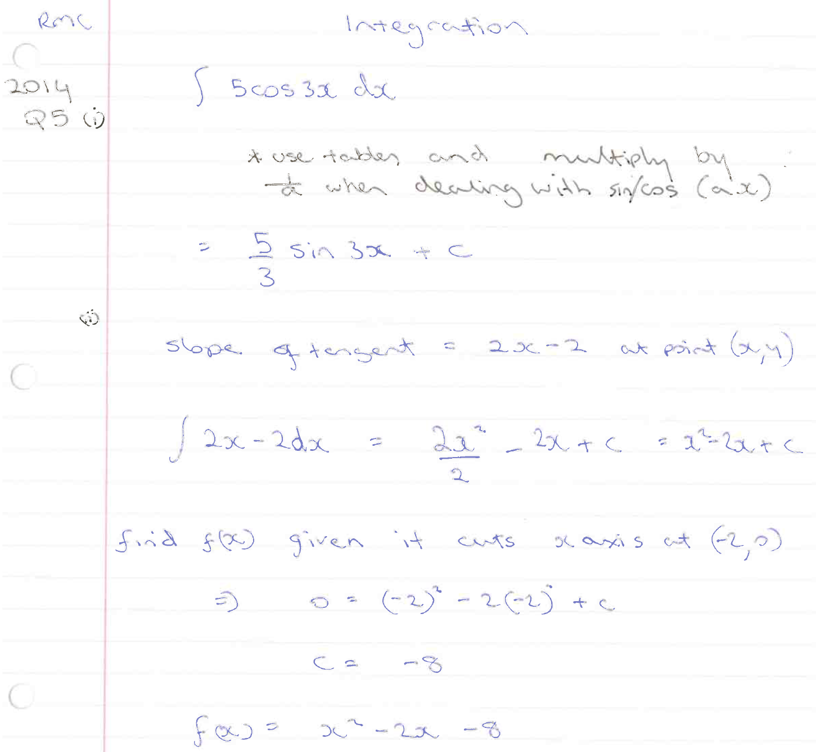 RMC Integration
2014
Q5 (i) ∫ 5cos 3x dx
* use tables and multiply by
1/a when dealing with sin/cos (ax)
= 5/3 sin 3x + c
(ii)
slope of tangent = 2x-2 at point (x,y)
∫ 2x - 2dx = 2x²/2 - 2x + c = x²-2x + c
find f(x) given it cuts x axis at (-2,0)
=> 0 = (-2)² - 2(-2) + c
c = -8
f(x) = x² - 2x - 8